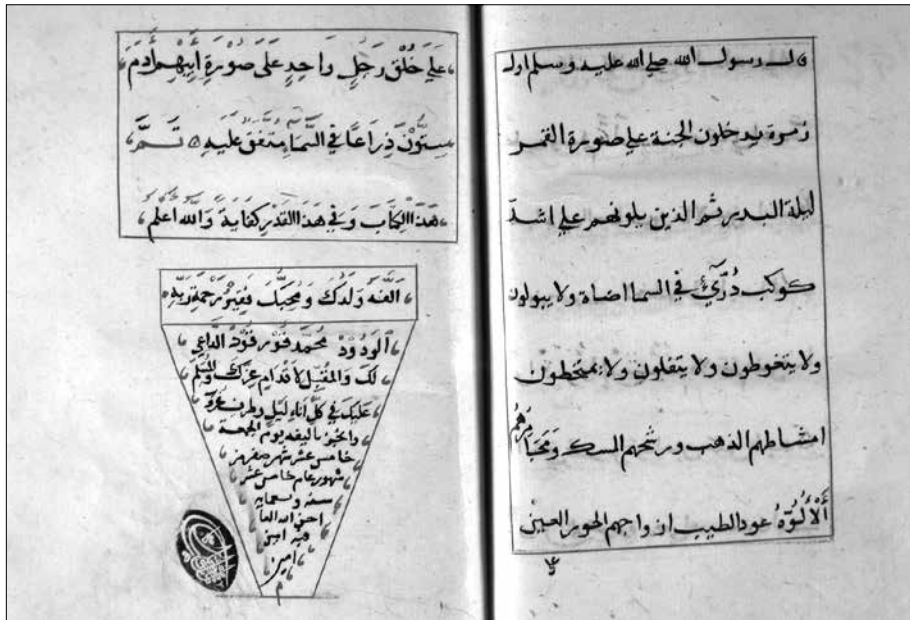 ل رسول الله صلي الله عليه وسلم اول
زمرة يدخلون الجنة علي صورة القمر
ليلة البدر ثم الذين يلونهم علي اشد
كوكب دُرِّيٍّ في السما اضاة ولا يبولون
ولا يتغوطون ولا يتفلون ولا يمتخطون
امشاطهم الذهب ورشحهم المسك وَمَجَامِرُهُمُ
أَلْأَلُوَّهُ عود الطيب ازواجهم الحور العين
عَلَي خُلْقِ رَجُلٍ وَاحِدٍ عَلَى صُوْرَةِ أَبِيْهِمْ أَدَمَ
سِتُّوْنَ ذِرَاعًا فِي السَّمَاءِ مُتَّفَقٌ عَلَيْهِ ۞ تَمَّ
هَذَا الْكِتَابُ وَفِي هَذَا القَدْرِ كِفَايَةٌ وَاللهُ اَعْلَم
اَلَّفَهُ وَلَدُكَ وَمُحِبُّكَ فَقِيْرُ رَحْمَةِ رَبِّهِ
اَلْوَدُوْدْ مُحَمَّد الدَّاعِي
لَكَ وَالمُقَبِّلُ لِأَقْدَامِ عِزِّكَ وَالمُسَلِّمُ
عَلَيْكَ فِي كُلِّ أَنَاءِ لَيْلٍ
تاليفه يوم الجمعة
خامس عشر شهر صفر
شهور عام خامس عشر
احسن الله
امين
م